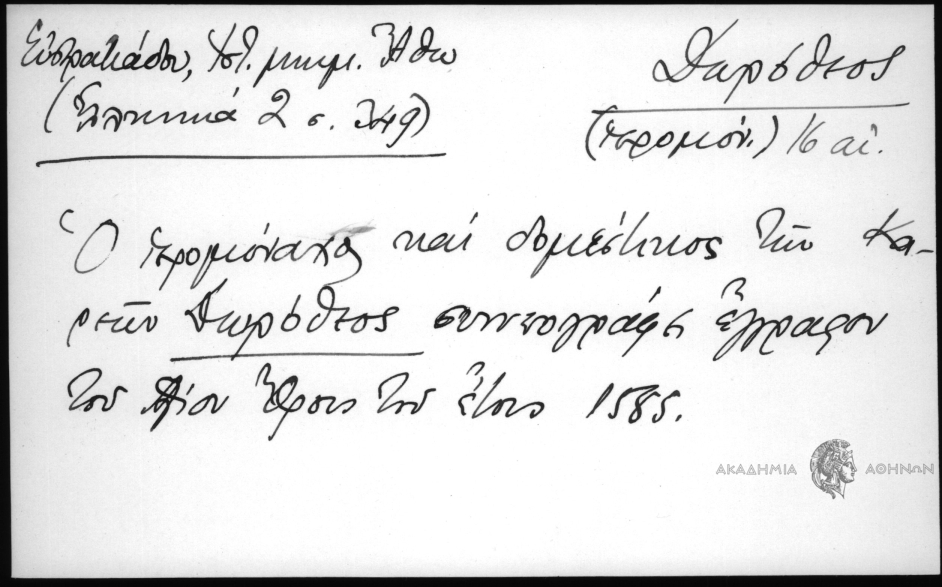 Εὐστρατιάδου, Ἱστ. μνημ. Ἄθω
(Ἑλληνικά 2 σ. 349)
Δωρόθεος
(ἱερομόν.) 16 αἰ.
Ὁ ἱερομόναχος καί δομέστικος τῶν Κα-
ρεῶν Δωρόθεος συνυπογράφει ἔγγραφον
τοῦ Ἁγίου Ὄρους τοῦ ἔτους 1585.
ΑΚΑΔΗΜΙΑ ΑΘΗΝΩΝ